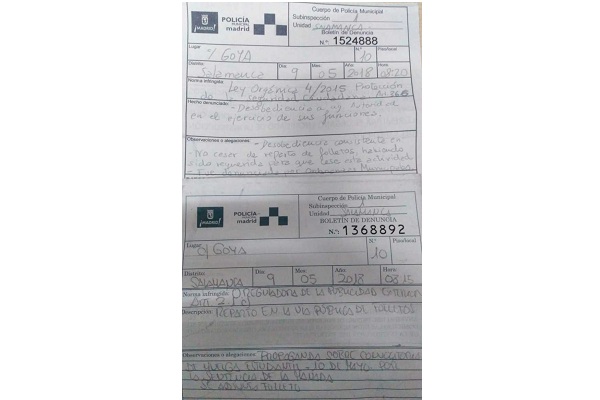 ¡MADRID!
POLICÍA
MUNICIPAL
madrid
Cuerpo de Policía Municipal
Subinspección
Unidad SALAMANCA
Boletín de Denuncia
N.º 1524888
Lugar
N.º
Piso/local
c/ GOYA 10
Distrito: Día: Mes: Año: Hora:
Salamanca 9 05 2018 08:20
Norma infringida: Ley Orgánica 4/2015 Protección
de la Seguridad Ciudadana Art. 36.6
Hecho denunciado: - Desobediencia a la autoridad
en el ejercicio de sus funciones.
Observaciones o alegaciones: - Desobediencia consistente en
- No cesar de reparto de folletos, habiendo
sido requerido para que cese esta actividad
- Fue
¡MADRID!
POLICÍA
MUNICIPAL
madrid
Cuerpo de Policía Municipal
Subinspección
Unidad SALAMANCA
BOLETÍN DE DENUNCIA
N.º 1368892
Lugar
N.º
Piso/local
c/ GOYA 10
Distrito: Día: Mes: Año: Hora:
SALAMANCA 9 05 2018 08:15
Norma infringida: O. REGULADORA DE LA PUBLICIDAD EXTERIOR
Descripción: REPARTO EN LA VÍA PÚBLICA DE FOLLETOS
Observaciones o alegaciones: PROPAGANDA SOBRE CONVOCATORIA
DE HUELGA ESTUDIANTIL - 10 DE MAYO POR
LA SENTENCIA DE LA MANADA
SE ADJUNTA FOLLETO